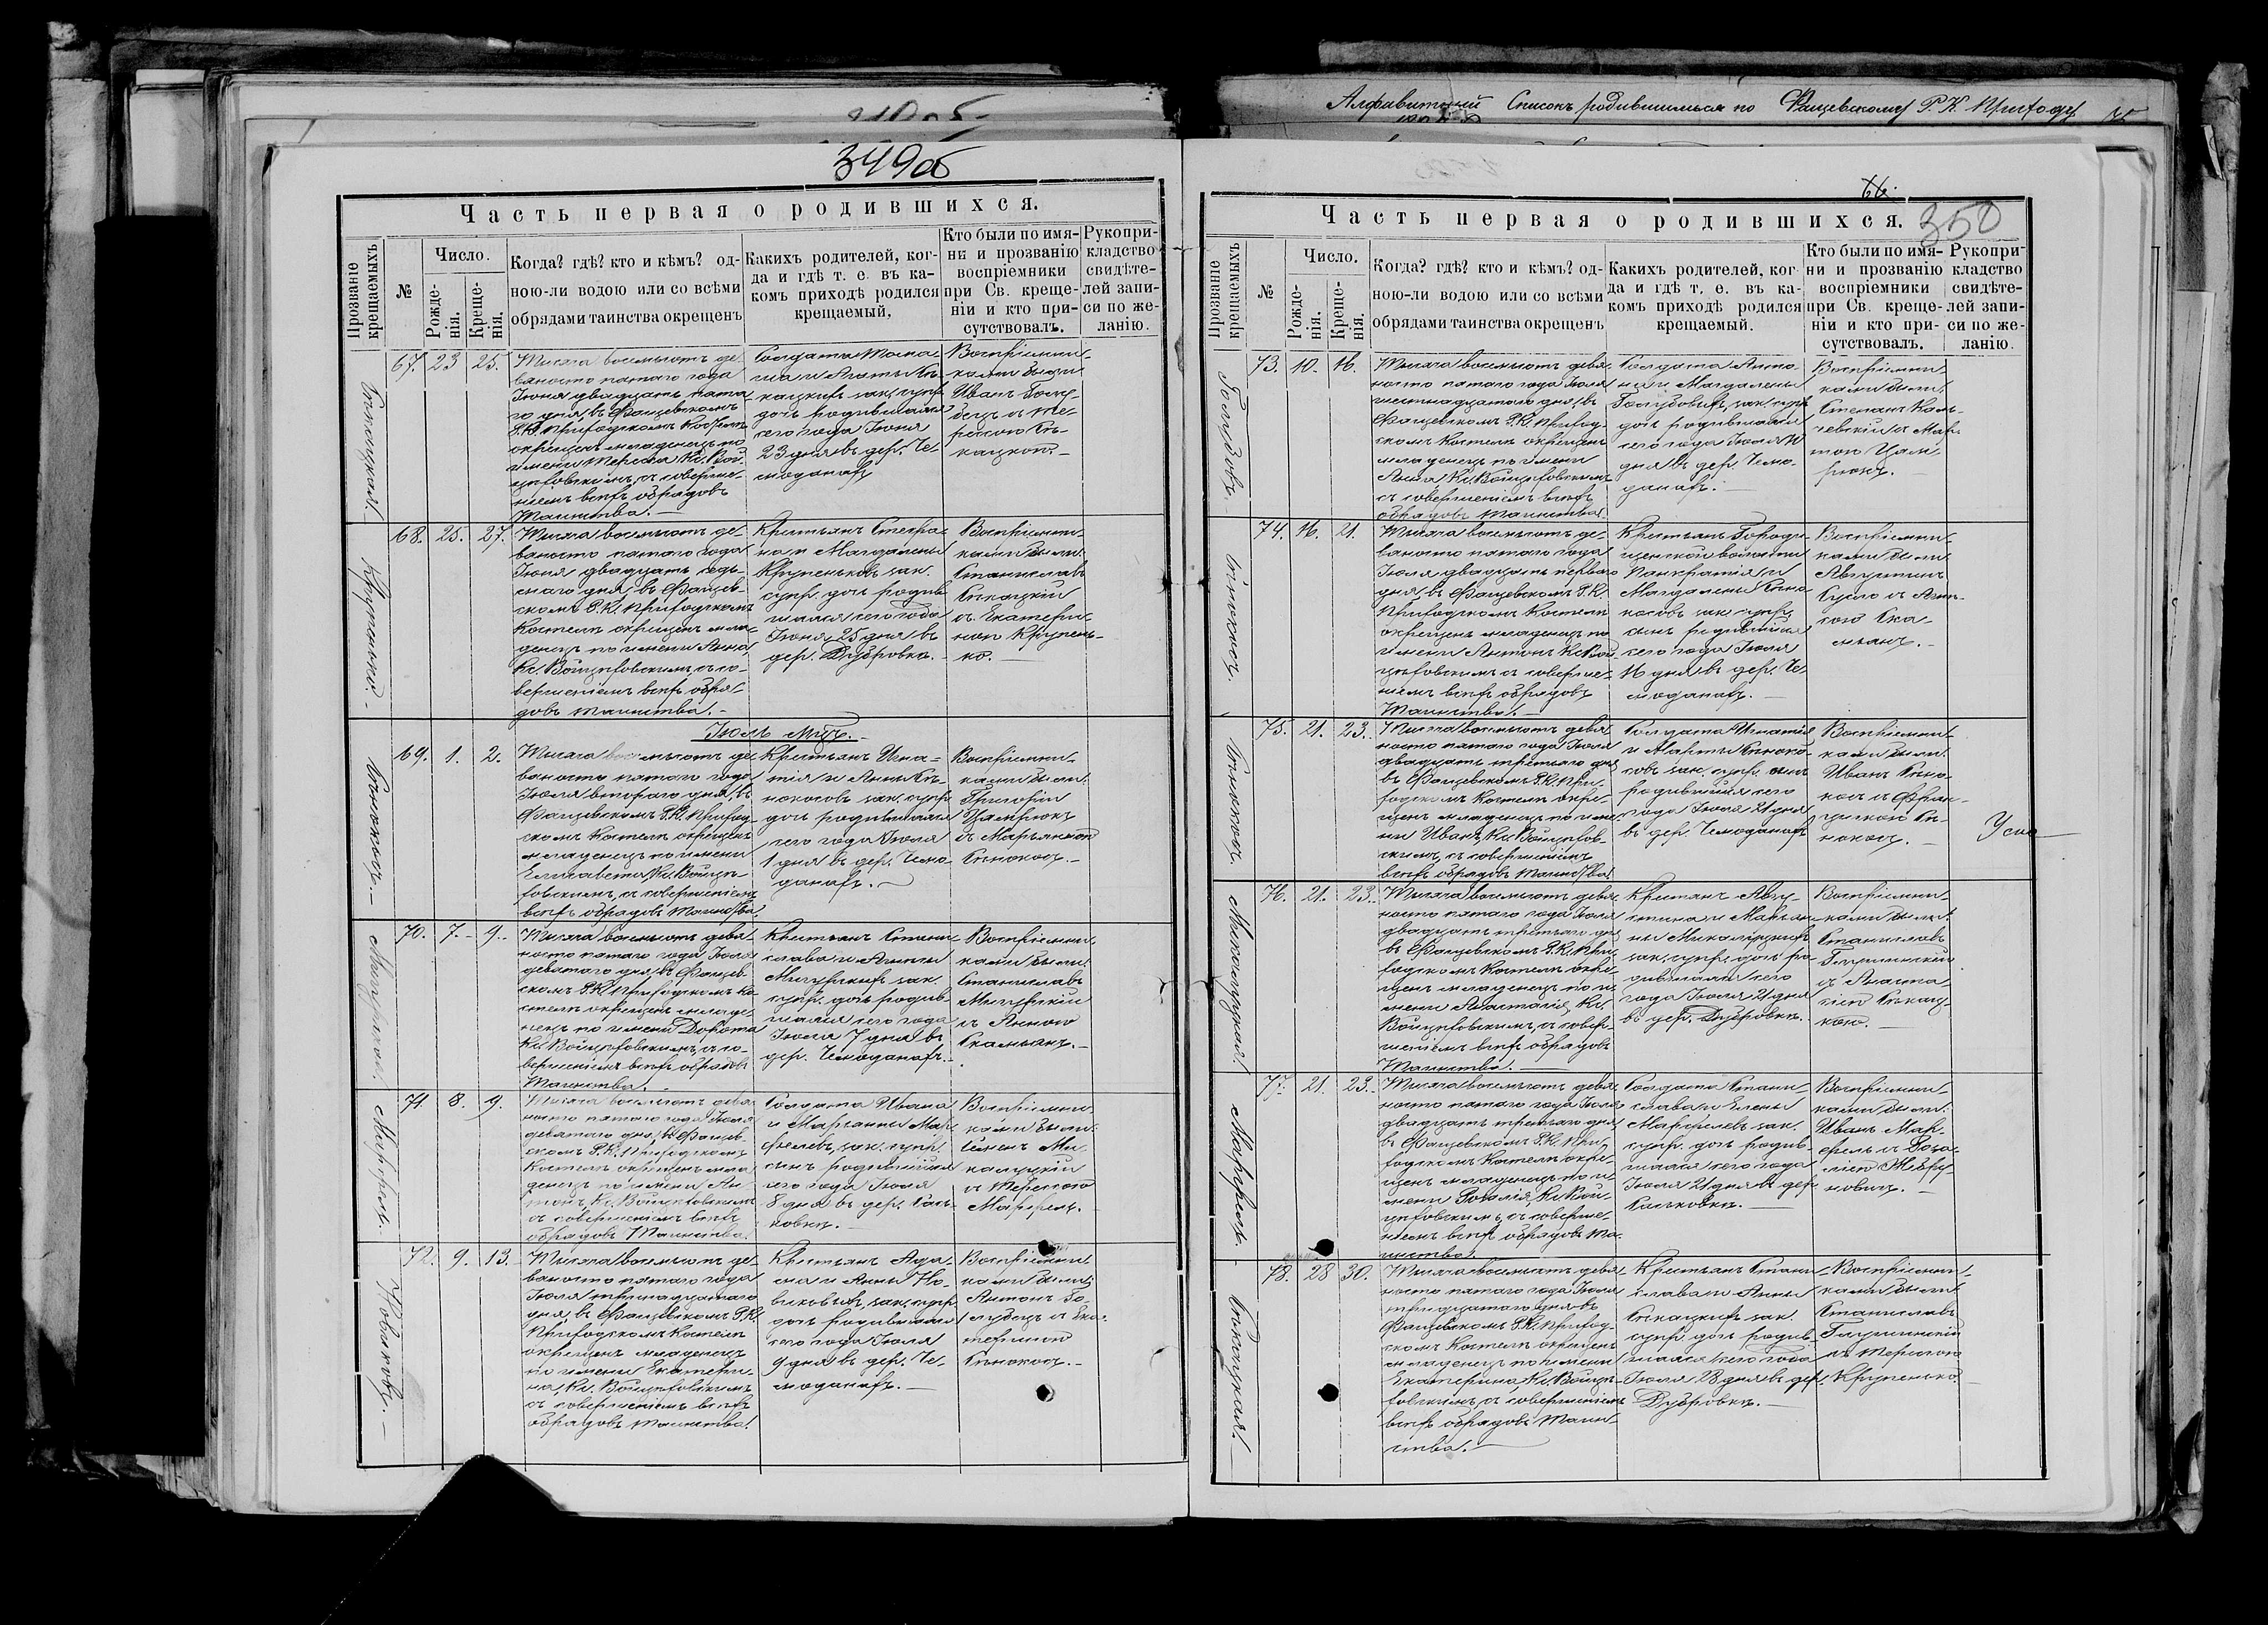 Алфавитный Списокъ родившимся по Фащевскому Р. К. Приходу
349об
Часть первая о родившихся.
Прозваніе крещаемыхъ
№
Число.
Рожде-
нія.
Креще-
нія.
Когда? гдѣ? кто и кѣмъ? од-
ною-ли водою или со всѣми
обрядами таинства окрещенъ
Какихъ родителей, ког-
да и гдѣ т. е. въ ка-
комъ приходѣ родился
крещаемый.
Кто были по имя-
ни и прозванію
воспріемники
при Св. креще-
ніи и кто при-
сутствовалъ.
Рукопри-
кладство
свидѣте-
лей запи-
си по же-
ланію.
67. 23 25.
Тысяча восемьсотъ де-
вяносто пятаго года
Іюня двадцать пята-
го дня, въ Фащевскомъ
Р.К. Приходскомъ Костелѣ
окрещенъ младенецъ по
имени Тересса Кс. Вой-
цѣховскимъ, съ соверше-
ніемъ всѣхъ обрядовъ
Таинства.
дочь родившаяся
сего года Іюня
23 дня въ дер. Че-
моданахъ
Воспріемни-
ками были
Иванъ Голу-
бецъ и Те-
68. 25. 27.
Тысяча восемьсотъ де-
вяносто пятаго года
Іюня двадцать седь-
маго дня, въ Фащев-
скомъ Р.К. Приходскомъ
Костелѣ окрещенъ мла-
денецъ по имени Анна,
Кс. Войцѣховскимъ, съ со-
вершеніемъ всѣхъ обря-
довъ таинства.
Крестьянъ Стефа-
на и Магдалены
Крупеньковъ зак.
супр. дочь родив-
шаяся сего года
Іюня 25 дня въ
дер. Дубровкѣ.
Воспріемни-
ками были
Станиславъ
съ Екатери-
ною Крупень-
ко.
Іюль мѣс.
69. 1. 2.
Тысяча восемьсотъ де-
вяносто пятаго года
Іюля втораго дня, въ
Фащевскомъ Р.К. Приход-
скомъ Костелѣ окрещенъ
младенецъ по имени
Елисавета, Кс. Войцѣ-
ховскимъ, съ совершеніемъ
всѣхъ обрядовъ Таинства.
Крестьянъ Игна-
тія и Анны Сѣ-
нокосовъ зак. супр.
дочь родившаяся
сего года Іюля
1 дня въ дер. Чемо-
данахъ.
Воспріемни-
ками были
Григорій
Цямрюкъ
съ Марьянною
Сѣнокосъ.
70. 7. 9.
Тысяча восемьсотъ девя-
носто пятаго года Іюля
девятаго дня, въ Фащев-
скомъ Р.К. Приходскомъ Ко-
стелѣ окрещенъ младе-
нецъ по имени Дорота
Кс. Войцѣховскимъ, съ со-
вершеніемъ всѣхъ обрядовъ
Таинства.
Крестьянъ Стани-
слава и Агаты
зак.
супр. дочь родив-
шаяся сего года
Іюля 7 дня въ
дер. Чемоданахъ.
Воспріемни-
ками были
Станиславъ
съ Анною
71. 8. 9.
Тысяча восемьсотъ девя-
носто пятаго года Іюля
девятаго дня, въ Фащев-
скомъ Р.К. Приходскомъ
Костелѣ окрещенъ мла-
денецъ по имени Ан-
тонъ, Кс. Войцѣховскимъ
съ совершеніемъ всѣхъ
обрядовъ Таинства.
Солдата Ивана
и Марьанны Мар-
фелевъ, зак. супр.
сынъ родившійся
сего года Іюля
8 дня въ дер. Сась-
ковкѣ.
Воспріемни-
ками были
съ Терессою
Марфель.
72. 9. 13.
Тысяча восемьсотъ де-
вяносто пятаго года
Іюля тринадцатаго
дня, въ Фащевскомъ Р.К.
Приходскомъ Костелѣ
окрещенъ младенецъ
по имени Екатери-
на, Кс. Войцѣховскимъ
съ совершеніемъ всѣхъ
обрядовъ таинства.
Крестьянъ Ада-
ма и Анны Но-
виковыхъ, зак. супр.
дочь родившаяся
сего года Іюля
9 дня въ дер. Че-
моданахъ.
Воспріемни-
ками были
Антонъ Го-
лубецъ и Ека-
териною
Сѣнокосъ.
350
Часть первая о родившихся.
Прозваніе крещаемыхъ
№
Число.
Рожде-
нія.
Креще-
нія.
Когда? гдѣ? кто и кѣмъ? од-
ною-ли водою или со всѣми
обрядами таинства окрещенъ
Какихъ родителей, ког-
да и гдѣ т. е. въ ка-
комъ приходѣ родился
крещаемый.
Кто были по имя-
ни и прозванію
воспріемники
при Св. креще-
ніи и кто при-
сутствовалъ.
Рукопри-
кладство
свидѣте-
лей запи-
си по же-
ланію.
73. 10. 16.
Тысяча восемьсотъ девя-
носто пятаго года Іюля
шестнадцатаго дня, въ
Фащевскомъ Р.К. Приход-
скомъ Костелѣ окрещенъ
младенецъ по имени
Анна, Кс. Войцѣховскимъ
съ совершеніемъ всѣхъ
обрядовъ таинства.
Солдата Анто-
нія и Магдалены
зак. супр.
дочь родившаяся
сего года Іюля 10
дня въ дер. Чемо-
данахъ.
Воспріемни-
ками были
74. 16. 21.
Тысяча восемьсотъ де-
вяносто пятаго года
Іюля двадцать перваго
дня, въ Фащевскомъ Р.К.
Приходскомъ Костелѣ
окрещенъ младенецъ по
имени Антонъ Кс. Вой-
цѣховскимъ съ соверше-
ніемъ всѣхъ обрядовъ
Таинства.
Крестьянъ Городи-
щенской волости
Панкратія и
Магдалены Сѣно-
косовъ зак. супр.
сынъ родившійся
сего года Іюля
16 дня въ дер. Че-
моданахъ.
Воспріемни-
ками были
Августинъ
75. 21. 23.
Тысяча восемьсотъ девя-
носто пятаго года Іюля
двадцать третьяго дня
въ Фащевскомъ Р.К. При-
ходскомъ Костелѣ окре-
щенъ младенецъ по име-
ни Иванъ, Кс. Войцѣхов-
скимъ, съ совершеніемъ
всѣхъ обрядовъ таинства.
Солдата Игнатія
и Марты Сѣноко-
совъ зак. супр. сынъ
родившійся сего
года Іюля 21 дня
въ дер. Чемоданахъ
Воспріемни-
ками были
Иванъ Сѣно-
косъ и Фран-
цишкою Сѣ-
нокосъ.
76. 21. 23.
Тысяча восемьсотъ девя-
носто пятаго года Іюля
двадцать третьяго дня
въ Фащевскомъ Р.К. При-
ходскомъ Костелѣ окре-
щенъ младенецъ по и-
мени Анастасія, Кс.
Войцѣховскимъ, съ совер-
шеніемъ всѣхъ обрядовъ
Таинства.
Крестьянъ Авгу-
стина и Марьан-
ны
зак. супр. дочь ро-
дившаяся сего
года Іюля 21 дня
въ дер. Дубровкѣ.
Воспріемни-
ками были
Станиславъ
съ Анаста-
сіею
77. 21. 23.
Тысяча восемьсотъ девя-
носто пятаго года Іюля
двадцать третьяго дня
въ Фащевскомъ Р.К. При-
ходскомъ Костелѣ окре-
щенъ младенецъ по и-
мени Розалія, Кс. Вой-
цѣховскимъ, съ соверше-
ніемъ всѣхъ обрядовъ Та-
инства.
Солдата Стани-
слава и Елены
Марфелевъ зак.
супр. дочь родив-
шаяся сего года
Іюля 21 дня въ дер.
Саськовкѣ.
Воспріемни-
ками были
Иванъ Мар-
фель и Роза-
ліею
78. 28 30.
Тысяча восемьсотъ девя-
носто пятаго года Іюля
тридцатаго дня въ
Фащевскомъ Р.К. Приход-
скомъ Костелѣ окрещенъ
младенецъ по имени
Екатерина, Кс. Войцѣ-
ховскимъ, съ совершеніемъ
всѣхъ обрядовъ Таин-
ства.
Крестьянъ Стани-
слава и Анны
зак.
супр. дочь родив-
шаяся сего года
Іюля 28 дня въ дер.
Дубровкѣ.
Воспріемни-
ками были
Станиславъ
съ Терессою
Крупенько